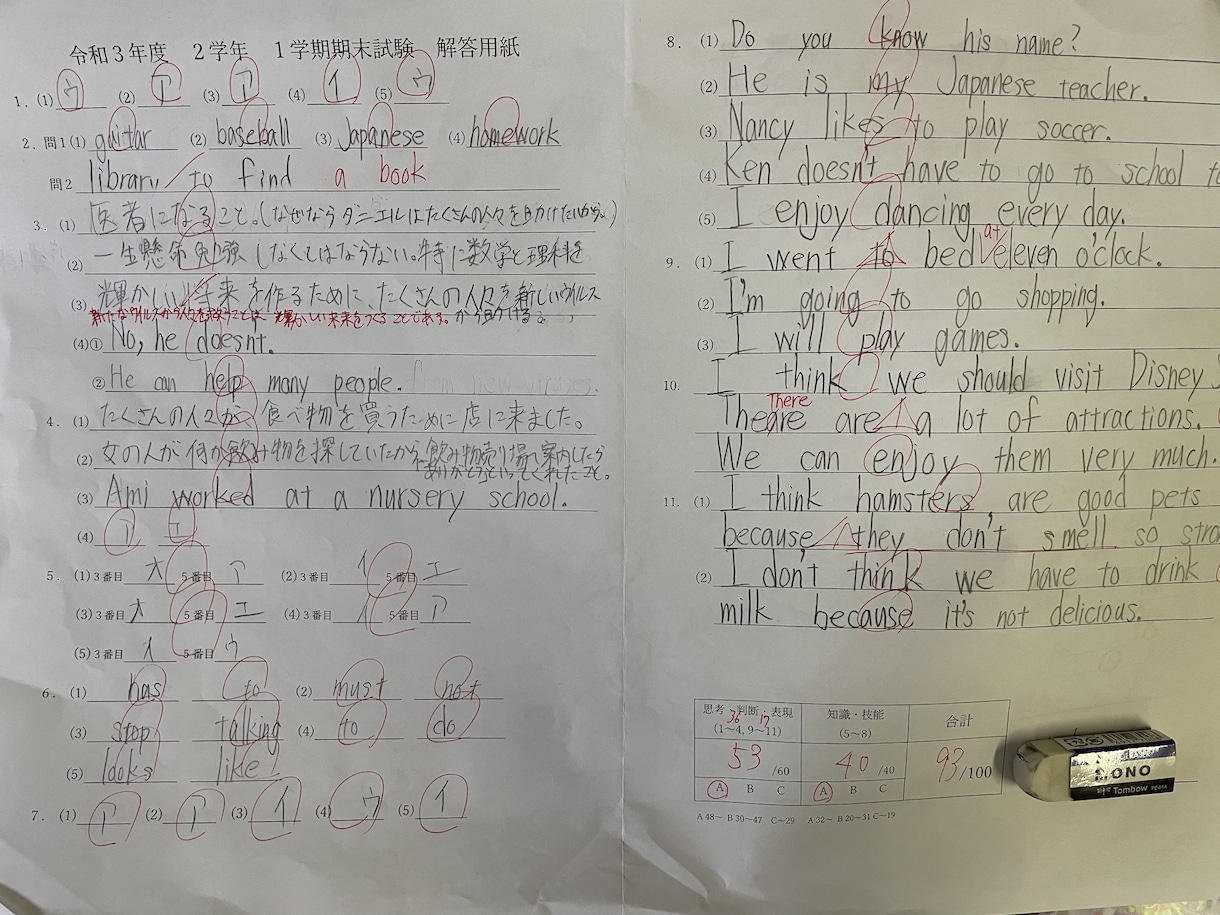 令和3年度 2学年 1学期期末試験 解答用紙
1. (1) ウ (2) ア (3) ア (4) イ (5) ウ
2. 問1 (1) guitar (2) baseball (3) Japanese (4) homework
問2 library to find a book
3. (1) 医者になること。(なぜならダニエルはたくさんの人々を助けたいから。)
(2) 一生懸命勉強しなくてはならない。特に数学と理科を
(3) 輝かしい将来を作るために、たくさんの人々を新しいウイルス
から助ける。
新たなウイルスから人々を救うことは、輝かしい未来をつくることである。
(4)① No, he doesn't.
② He can help many people. from new viruses.
4. (1) たくさんの人々が、食べ物を買うために店に来ました。
(2) 女の人が何か飲み物を探していたから、飲み物売り場へ案内したら
ありがとうといってくれたこと。
(3) Ami worked at a nursery school.
(4) ア エ
5. (1) 3番目 オ 5番目 ア (2) 3番目 イ 5番目 エ
(3) 3番目 オ 5番目 エ (4) 3番目 イ 5番目 ア
(5) 3番目 イ 5番目 ウ
6. (1) has to (2) must not
(3) stop talking (4) to do
(5) looks like
7. (1) ア (2) ア (3) イ (4) ウ (5) イ
8. (1) Do you know his name?
(2) He is my Japanese teacher.
(3) Nancy likes to play soccer.
(4) Ken doesn't have to go to school to
(5) I enjoy dancing every day.
9. (1) I went to bed at eleven o'clock.
(2) I'm going to go shopping.
(3) I will play games.
10. I think we should visit Disney
There
Theare are a lot of attractions.
We can enjoy them very much.
11. (1) I think hamsters are good pets
because they don't smell so stro
(2) I don't think we have to drink
milk because it's not delicious.
思考・判断・表現 知識・技能 合計
36 17
(1~4, 9~11) (5~8)
53/60 40/40 93/100
A B C A B C
A 48~ B 30~47 C~29 A 32~ B 20~31 C~19
MONO
Tombow PE-01A